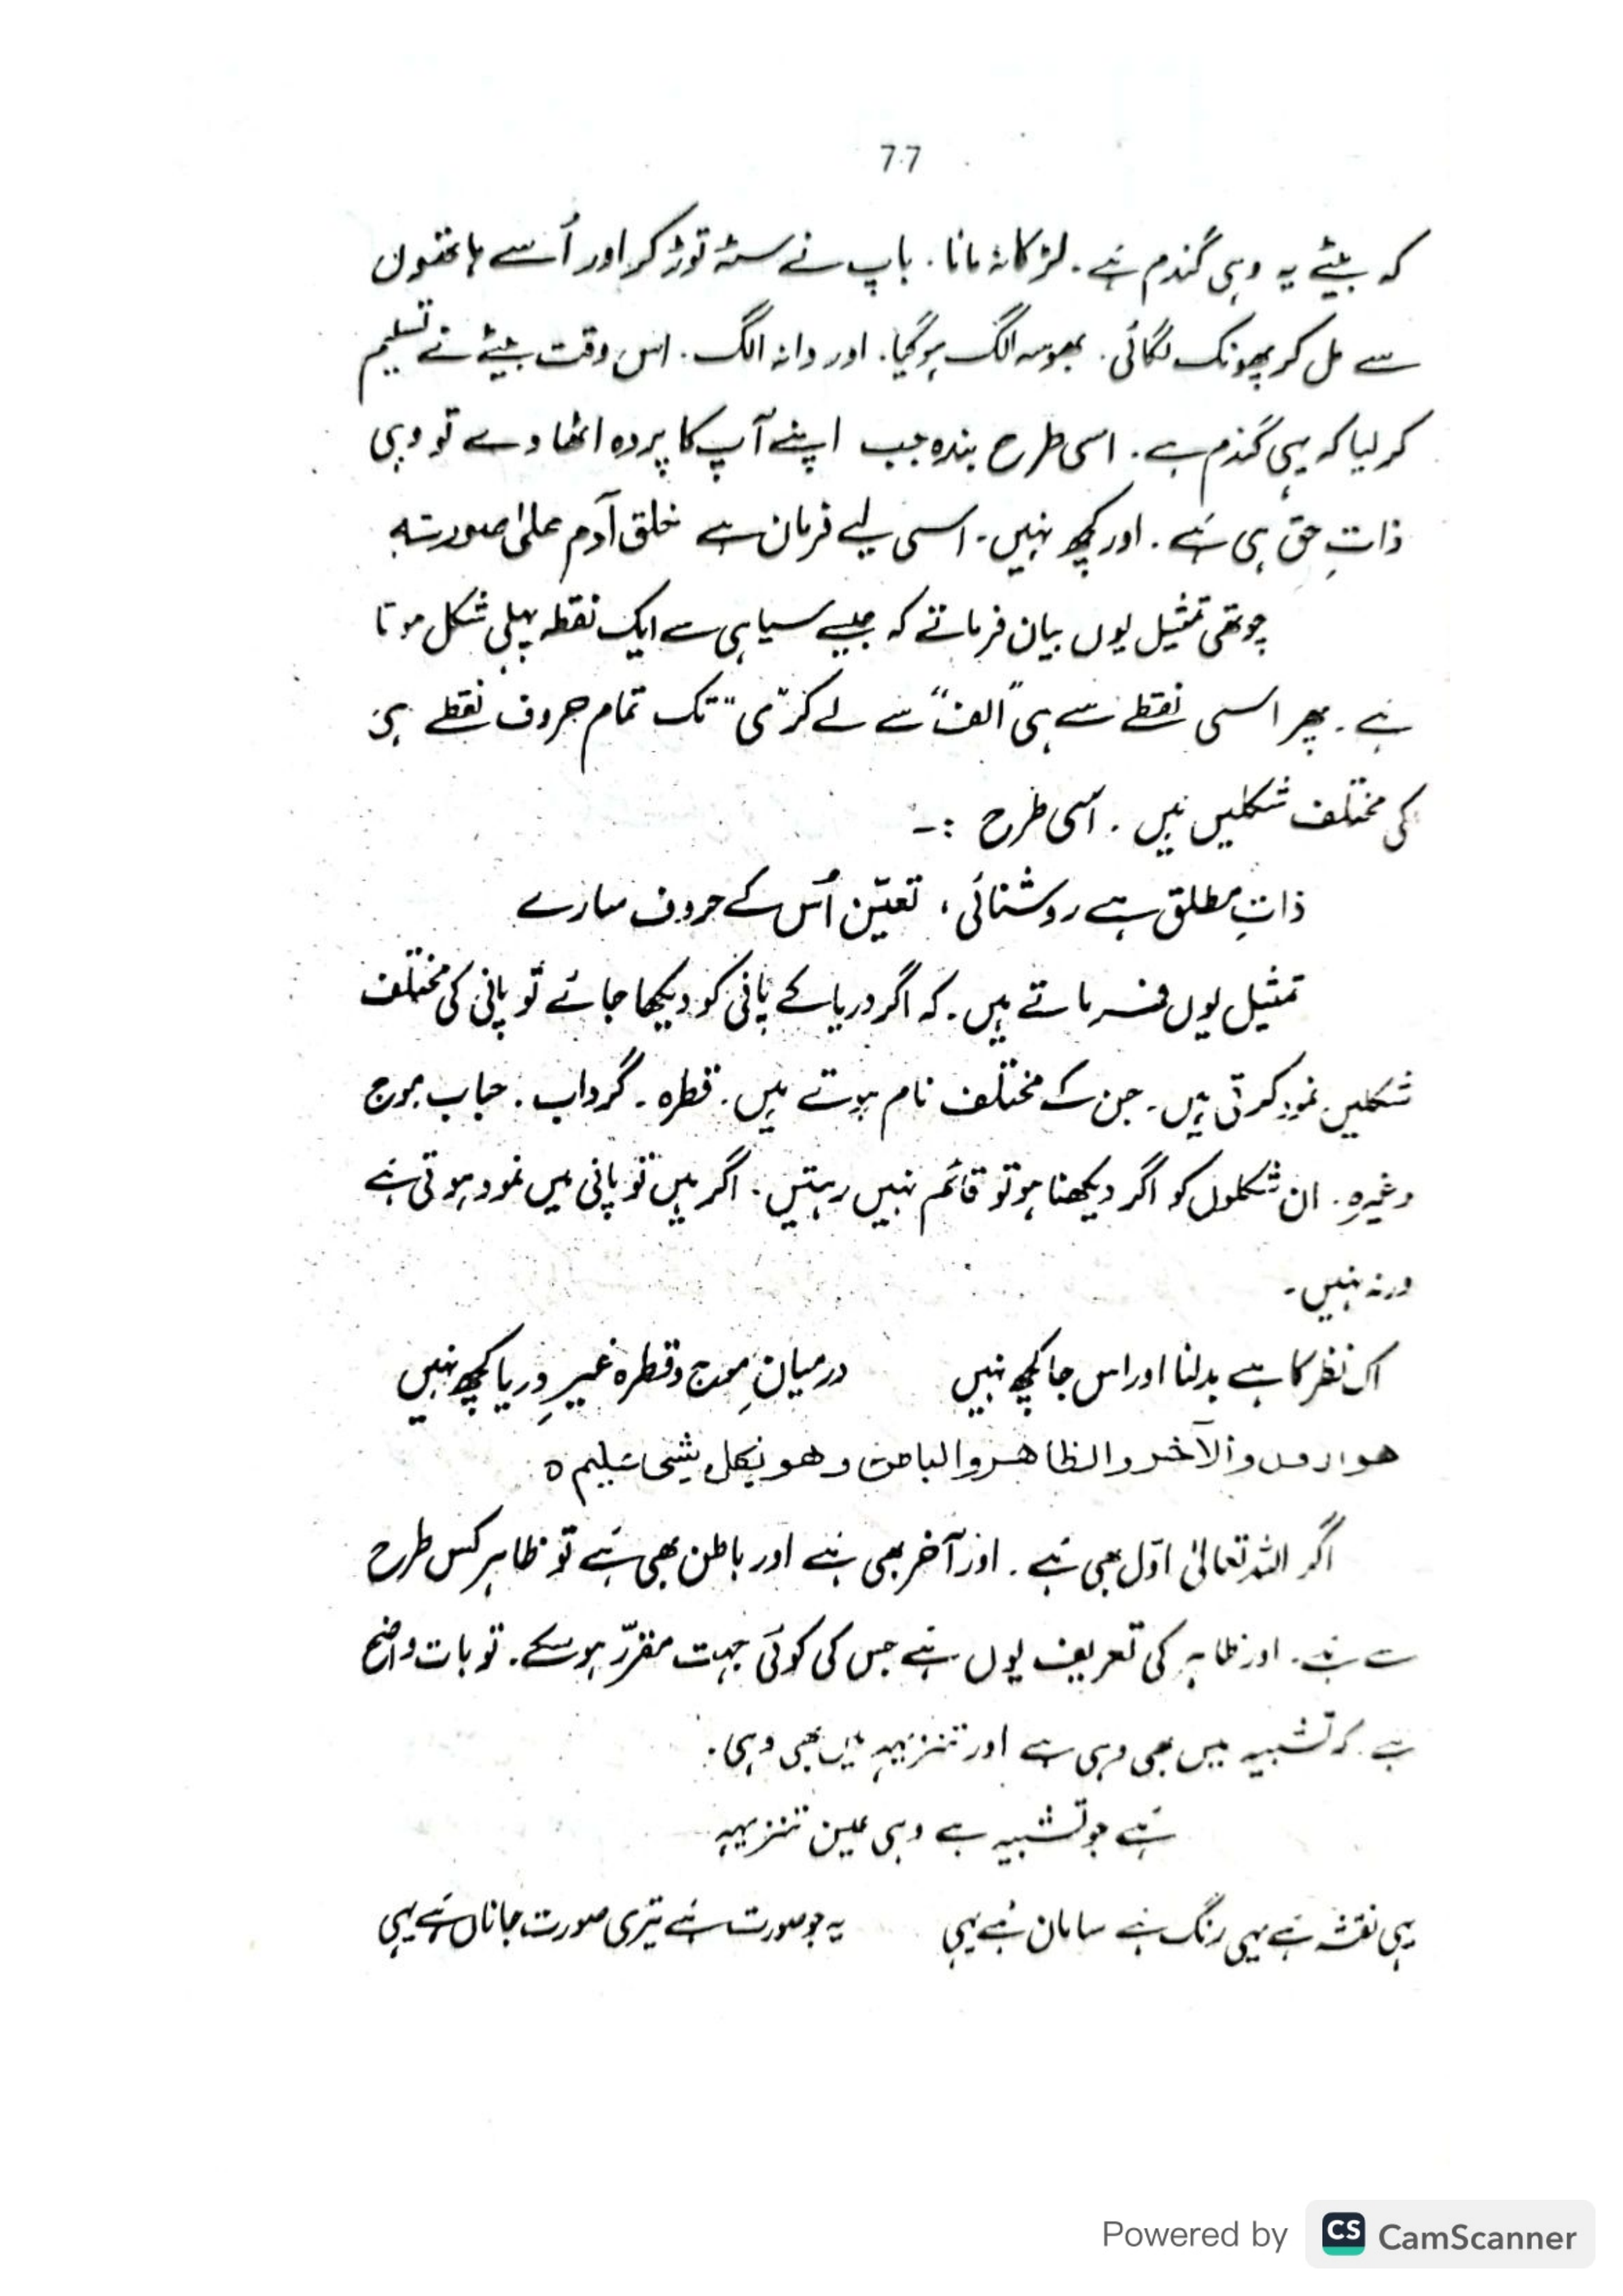 77
کہ بیٹے یہ وہی گندم ہے۔ لڑکا نہ مانا۔ باپ نے سٹہ توڑ کر اور اُسے ہاتھوں
سے مل کر پھونک لگائی۔ بھوسہ الگ ہو گیا۔ اور دانہ الگ۔ اس وقت بیٹے نے تسلیم
کر لیا کہ یہی گندم ہے۔ اسی طرح بندہ جب اپنے آپ کا پردہ اٹھا دے تو وہی
ذاتِ حق ہی ہے۔ اور کچھ نہیں۔ اسی لیے فرمان ہے خلق آدم علیٰ صورتہٖ
چوتھی تمثیل یوں بیان فرماتے کہ جیسے سیاہی سے ایک نقطہ پہلی شکل ہوتا
ہے۔ پھر اسی نقطے سے ہی "الف" سے لے کر "ی" تک تمام حروف نقطے ہی
کی مختلف شکلیں ہیں۔ اسی طرح :-
ذاتِ مطلق ہے روشنائی، تعیّن اُس کے حروف سارے
تمثیل یوں فرماتے ہیں۔ کہ اگر دریا کے پانی کو دیکھا جائے تو پانی کی مختلف
شکلیں نمود کرتی ہیں۔ جن کے مختلف نام ہوتے ہیں۔ قطرہ۔ گرداب۔ حباب موج
وغیرہ۔ ان شکلوں کو اگر دیکھنا ہو تو قائم نہیں رہتیں۔ اگر ہیں تو پانی میں نمود ہوتی ہے
ورنہ نہیں۔
اک نظر کا ہے بدلنا اور اس جا کچھ نہیں درمیانِ موج و قطرہ غیرِ دریا کچھ نہیں
ھوالاول والآخر والظاھر والباطن وھو بکل شیئ علیم ہ
اگر اللہ تعالیٰ اوّل بھی ہے۔ اور آخر بھی ہے اور باطن بھی ہے تو ظاہر کس طرح
سے ہے۔ اور ظاہر کی تعریف یوں ہے جس کی کوئی جہت مقرّر ہو سکے۔ تو بات واضح
ہے۔ کہ تشبیہ میں بھی وہی ہے اور تنزیہہ میں بھی وہی۔
ہے جو تشبیہ ہے وہی عین تنزیہہ
یہی نقشہ ہے یہی رنگ ہے سامان ہے یہی یہ جو صورت ہے تیری صورت جاناں ہے یہی
Powered by CS CamScanner